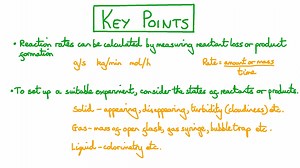 KEY POINTS
• Reaction rates can be calculated by measuring reactant loss or product
formation
g/s kg/min mol/h Rate = amount or mass
time
• To set up a suitable experiment, consider the states of reactants or products.
Solid - appearing, disappearing, turbidity (cloudiness) etc.
Gas - mass of open flask, gas syringe, bubble trap etc.
Liquid - colorimetry etc.